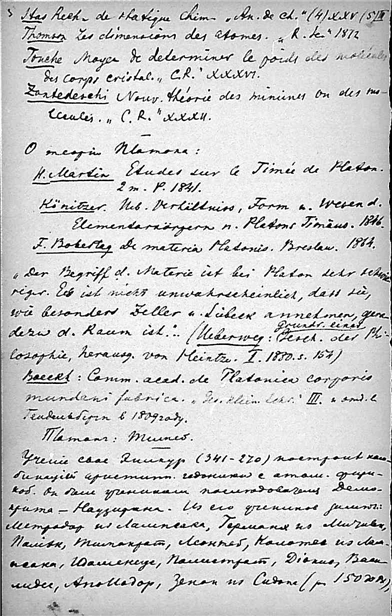 Stas Rech. de statique chim. „An. de ch." (4) XXV (5) III
Thomson Les dimensions des atomes. „R. Sc" 1872
Touche Moyen de determiner le poids des molécules
des corps cristal. „C.R." XXXVI.
Zantedeschi Nouv. théorie des minines ou des mo-
lécules. „C.R." XXXII.
О теории Платона:
H. Martin Etudes sur le Timée de Platon.
2 m. P. 1841.
Könitzer. Ueb. Verhältniss, Form u. Wesen d.
Elementarkörpern n. Platons Timäus. 1846.
F. Bobertag De materia Platonis. Breslau. 1864.
„Der Begriff d. Materie ist bei Platon sehr schwie
rig. Es ist nicht unwahrscheinlich, dass sie,
wie besonders Zeller u. Siebeck annehmen, gera-
dezu d. Raum ist." (Ueberweg: Grundr. einer Gesch. des Phi-
losophie, herausg. von Heintze I. 1880. S. 154)
Boeckh: Comm. acad. de Platonica corporis
mundani fabrica. „Ges. klein. Schr." III. и отд. в
1809 году.
Платон: Тимей.
Учение свое Эпикур (341-270) построил
с атом.
Он был учеником последователя Демо-
крита - Навзифана. Из его учеников
Метродор из Лампсака, Гермарх из Митилен,
Полиэн, Тимократ, Леонтей, Колотес из Лам-
псака, Идоменеус, Полистрат, Дионис, Васи-
лидес, Аполлодор, Зенон из Сидона (150